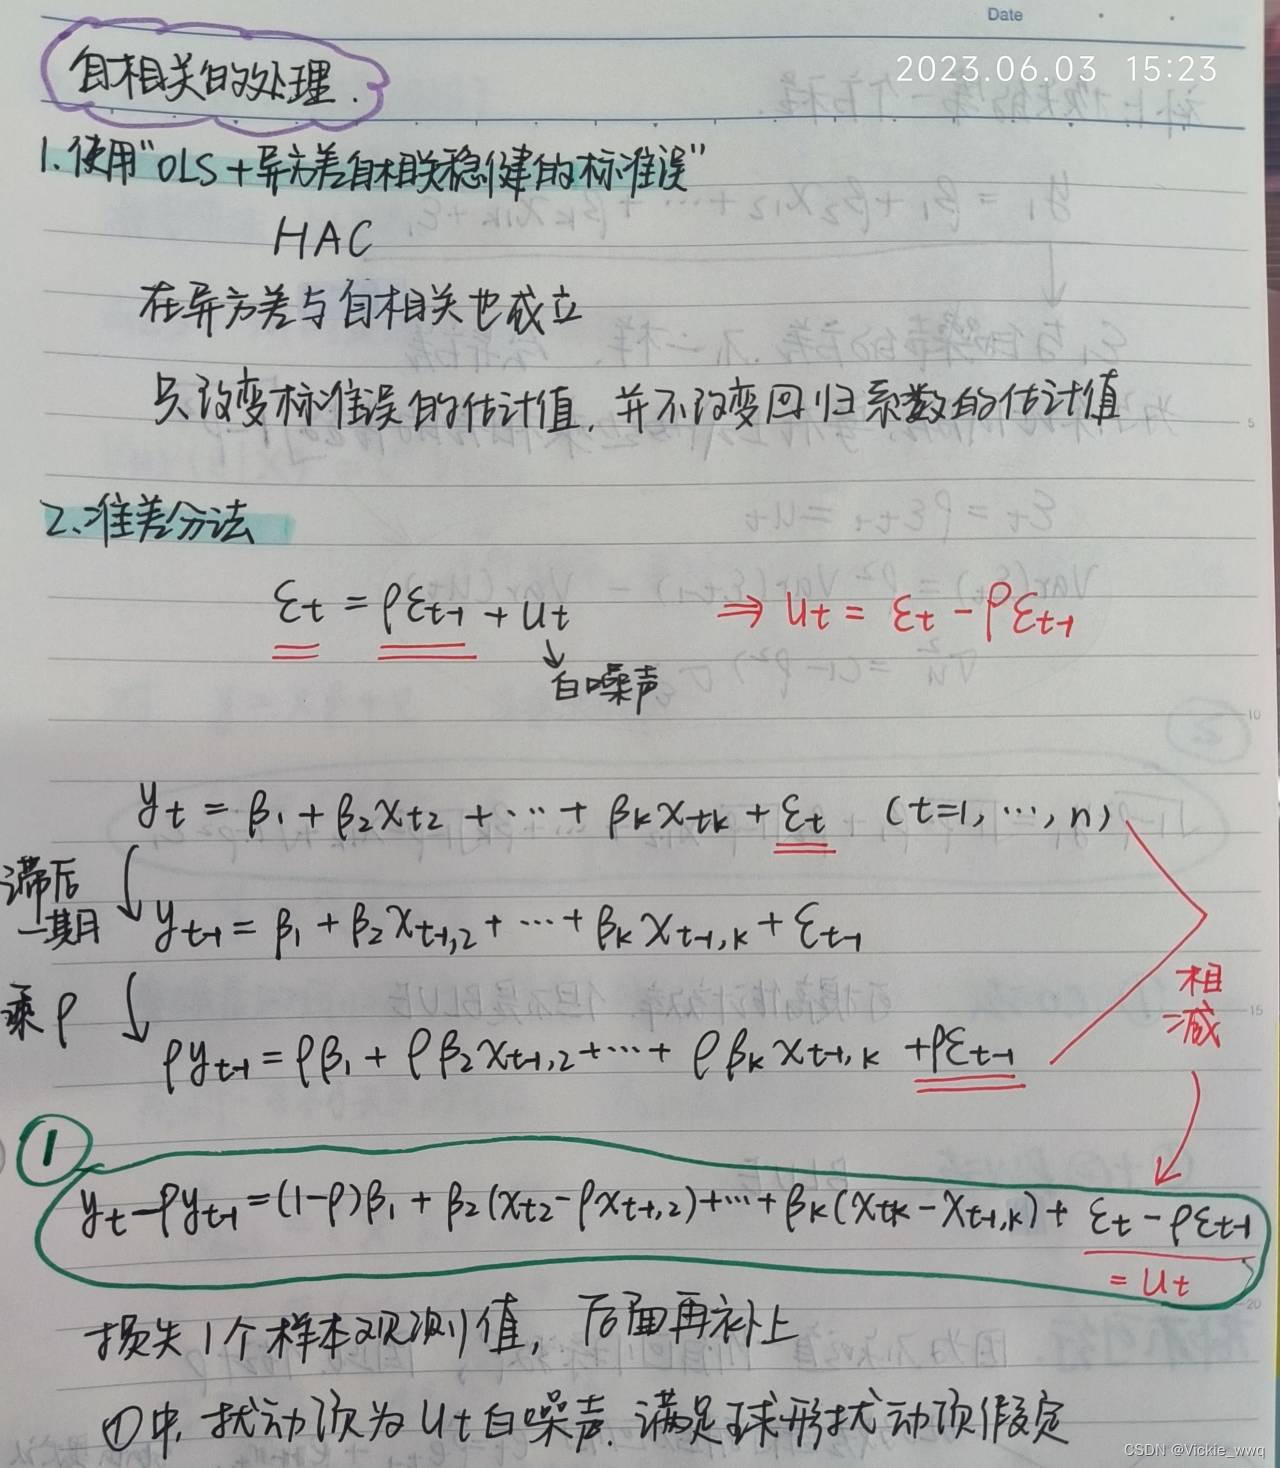 Date
2023.06.03 15:23
自相关的处理.
1.使用"OLS+异方差自相关稳健的标准误"
HAC
在异方差与自相关也成立
只改变标准误的估计值,并不改变回归系数的估计值
5
2.准差分法
εt = ρεt-1 + ut ⇒ ut = εt - ρεt-1
白噪声
10
yt = β1 + β2xt2 + ··· + βkxtk + εt (t=1, ···, n)
滞后一期
yt-1 = β1 + β2xt-1,2 + ··· + βkxt-1,k + εt-1
相减
15
乘ρ
ρyt-1 = ρβ1 + ρβ2xt-1,2 + ··· + ρβkxt-1,k + ρεt-1
①
yt - ρyt-1 = (1-ρ)β1 + β2(xt2 - ρxt-1,2) + ··· + βk(xtk - xt-1,k) + εt - ρεt-1
= ut
20
损失1个样本观测值,后面再补上
①中,扰动项为ut白噪声.满足球形扰动项假定
CSDN @Vickie_wwq